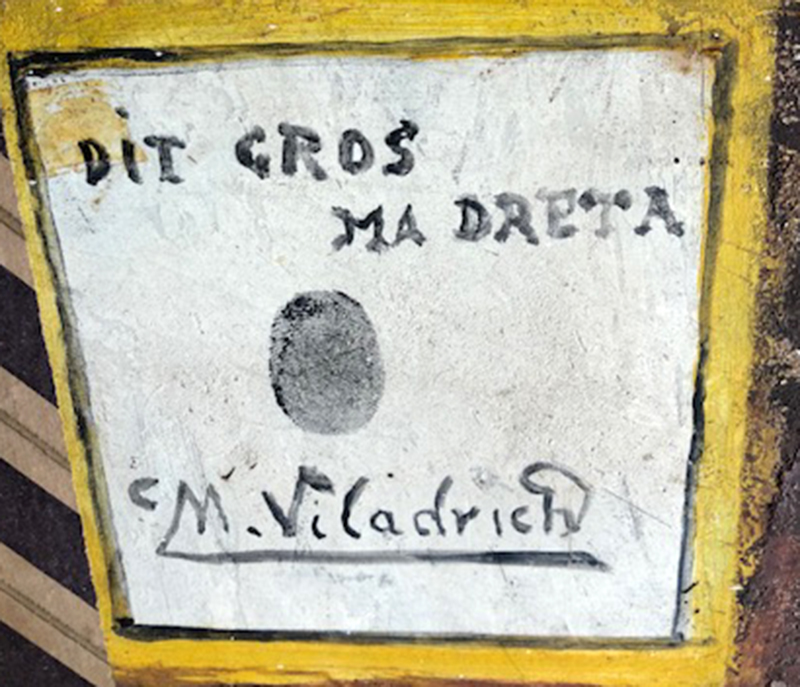 DiT GROS
MA DRETA
M. Viladrich